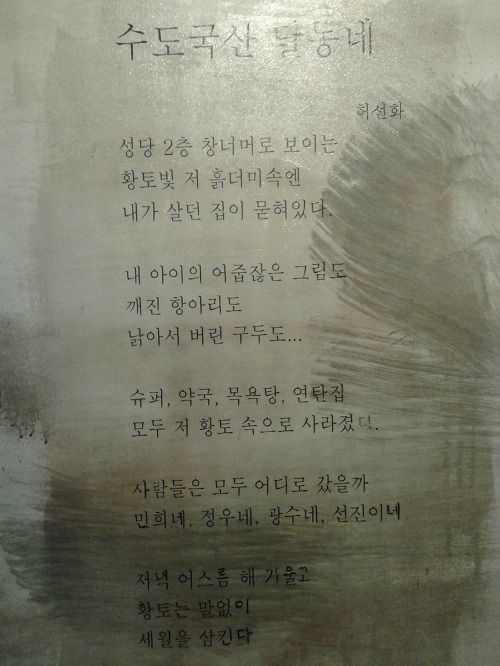 수도국산 달동네
허선화
성당 2층 창너머로 보이는
황토빛 저 흙더미속엔
내가 살던 집이 묻혀있다.
내 아이의 어줍잖은 그림도
깨진 항아리도
낡아서 버린 구두도...
슈퍼, 약국, 목욕탕, 연탄집
모두 저 황토 속으로 사라졌다.
사람들은 모두 어디로 갔을까
민희네, 정우네, 광수네, 선진이네
저녁 어스름 해 기울고
황토는 말없이
세월을 삼킨다